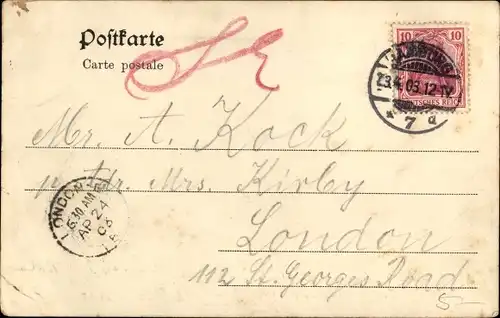 Postkarte
Carte postale
S E
10 10
HAMBURG
23.4.03.12-1N.
* 7 d
DEUTSCHES REICH
Mr. A. Kock
p. Adr. Mrs. Kirby
London
112 St. Georges Road
LONDON
5.30 AM
AP 24
03
5